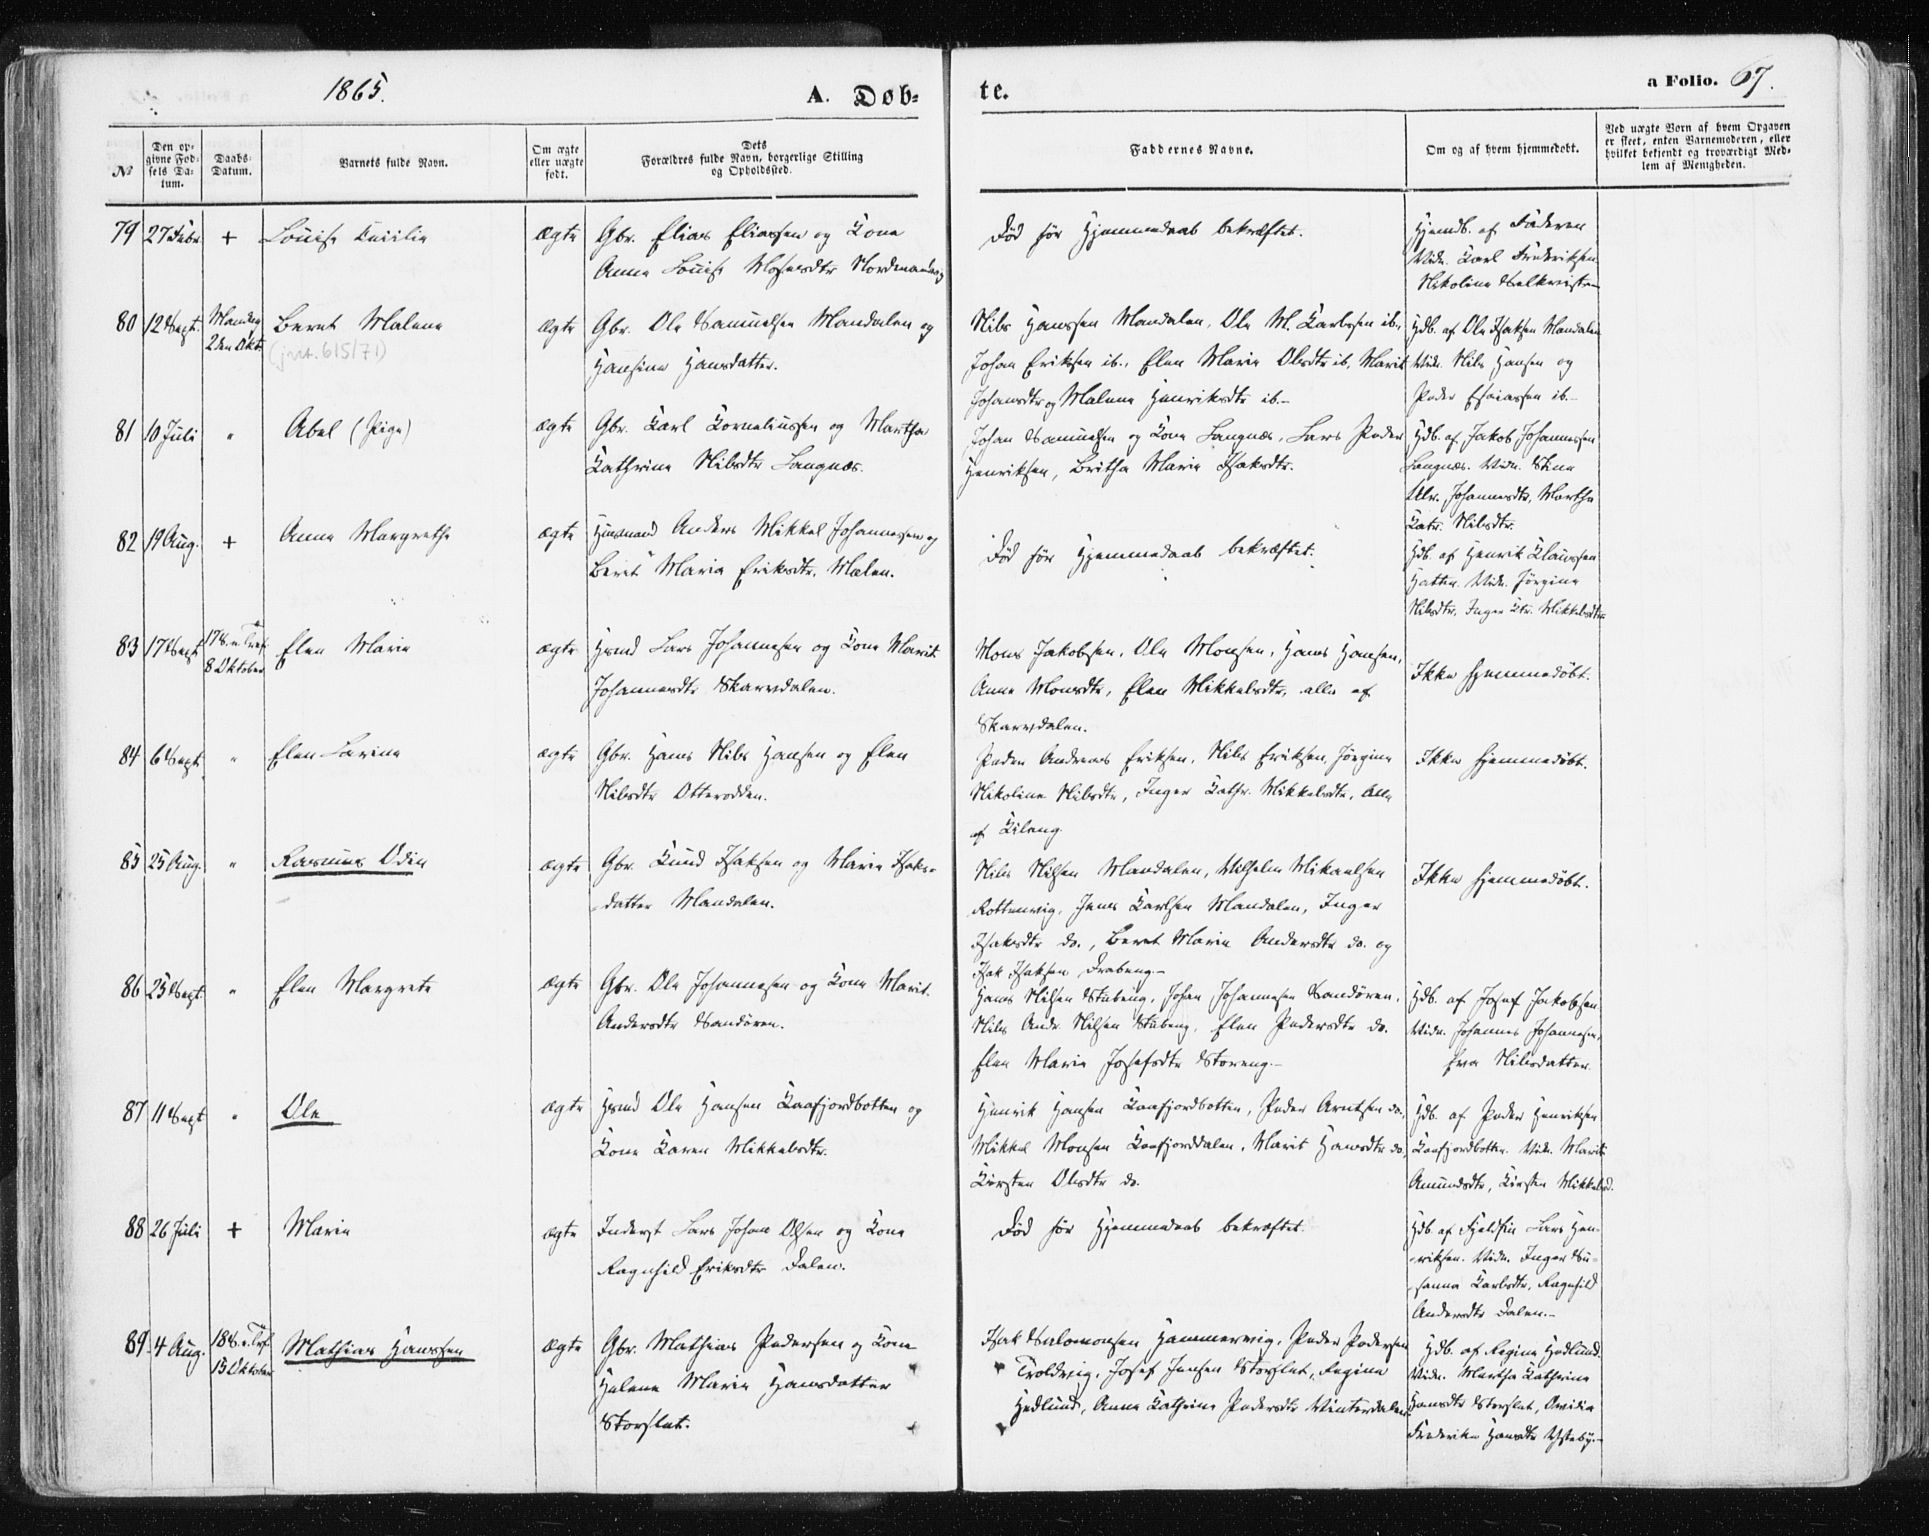 1865.
A. Døb-
te.
a Folio. 67.
No
Den op-
givne Fød-
sels Da-
tum.
Daabs-
Datum.
Barnets fulde Navn.
Om ægte
eller uægte
født.
Dets
Forældres fulde Navn, borgerlige Stilling
og Opholdssted.
Faddernes Navne.
Om og af hvem hjemmedøbt.
Ved uægte Børn af hvem Opgaven
er skeet, enten Barnemoderen, eller
hvilket bekjendt og troværdigt Med-
lem af Menigheden.
79 27 Febr. + Louise Cecilie ægte
Gbr. Elias Eliassen og Kone
Anna Louise
Død før Hjemmedaab bekræftet.
Hjemdb. af Faderen
Vidn. Carl Frederiksen
Nikoline
80 12 Sept. Mandag
2den Okt. Beret Malene ægte
(jvnf. 615/71)
Gbr. Ole Samuelsen Mandalen og
Hansine Hansdatter.
Nils Hanssen Mandalen, Ole M. Karlssen ib.,
Johan Eriksen ib., Elen Maria Olsdtr ib, Marit
Johansdtr og Malene Henriksdtr ib.-
Hdb. af Ole Isaksen Mandalen
Vidn. Nils Hansen og
Peder Esaiassen ib.-
81 10 Juli " Abel (Pige) ægte
Gbr. Karl Korneliussen og Martha
Kathrine Nilsdtr Langnæs.
Johan Samuelsen og Kone Langnæs, Lars Peder
Henriksen, Britha Maria Isaksdtr.
Hdb. af Jakob Johannessen
Langnæs. Vidn. Stine
Johannesdtr, Martha
Katr. Nilsdtr.
82 19 Aug. + Anna Margrethe ægte
Husmand Anders Mikkel Johannessen og
Beret Maria Eriksdtr. Mælen.
Død før Hjemmedaab bekræftet.
Hdb. af Henrik Klaussen
Hatten. Vidn. Jørgine
Nilsdtr, Inger Ktr. Mikkelsdtr
83 17 Sept. 17 S. e. Tref.
8 Oktober Elen Marie ægte
Hsmd Lars Johannesen og Kone Marit
Johannesdtr Skarvdalen.
Mons Jakobsen, Ole Monsen, Hans Hansen,
Anne Monsdtr, Elen Mikkelsdtr, alle af
Skarvdalen.
Ikke hjemmedøbt.
84 6 Sept. " Elen Larine ægte
Gbr. Hans Nils Hansen og Elen
Nilsdtr Otterodden.
Peder Andreas Eriksen, Nils Eriksen, Jørgine
Nikoline Nilsdtr, Inger Kathr. Mikkelsdtr, Alle
af Kileng.
Ikke hjemmedøbt.
85 25 Aug. " Rasmus Odin ægte
Gbr. Knud Isaksen og Maria Isaks-
datter Mandalen.
Nils Nilsen Mandalen, Vilhelm Mikaelsen
Rottenvig, Jens Karlsen Mandalen, Inger
Isaksdtr do., Beret Maria Andersdtr do. og
Isak Isaksen Drabeng.-
Ikke hjemmedøbt.
86 25 Sept. " Elen Margrete ægte
Gbr. Ole Johannesen og Kone Marit
Andersdtr Sandøren.
Hans Nilsen Stubeng, Johan Johannesen Sandøren,
Nils Andr. Nilsen Stubeng, Elen Pedersdtr do.
Elen Maria Josefsdtr Storeng.-
Hdb. af Josef Jakobsen.
Vidn. Johannes Johannesen,
Eva Nilsdatter.
87 11 Sept " Ole ægte
Hsmd Ole Hansen Kaafjordbotten og
Kone Karen Mikkelsdtr.
Henrik Hansen Kaafjordbotten, Peder Arntsen do.,
Mikkel Monsen Kaafjorddalen, Marit Hansdtr do.,
Kirsten Olsdtr do.
Hdb. af Peder Henriksen
Kaafjordbotten. Vidn. Marit
Amundsdtr, Kirsten Mikkelsd.
88 26 Juli + Maria ægte
Inderst Lars Johan Olsen og Kone
Ragnhild Eriksdtr Dalen.
Død før Hjemmedaab bekræftet.
Hdb. af Fjeldfin Lars Hen-
riksen. Vidn. Inger Su-
sanna Karlsdtr, Ragnhild
Andersdtr Dalen.-
89. 4 Aug. 18 S. e. Tref.
15 Oktober Mathias Hanssen ægte
Gbr. Mathias Pedersen og Kone
Helene Maria Hansdatter
Storslet.
Isak Salomonsen Hammervig, Peder Pedersen
Troldvig, Josef Jensen Storslet, Regine
Hedlund, Anna Kathrine Pedersdtr Winterdalen
Hdb. af Regine Hedlund.
Vidn. Martha Kathrine
Hansdtr Storslet, Ovidia
Frederika Hansdtr Ysteby.-